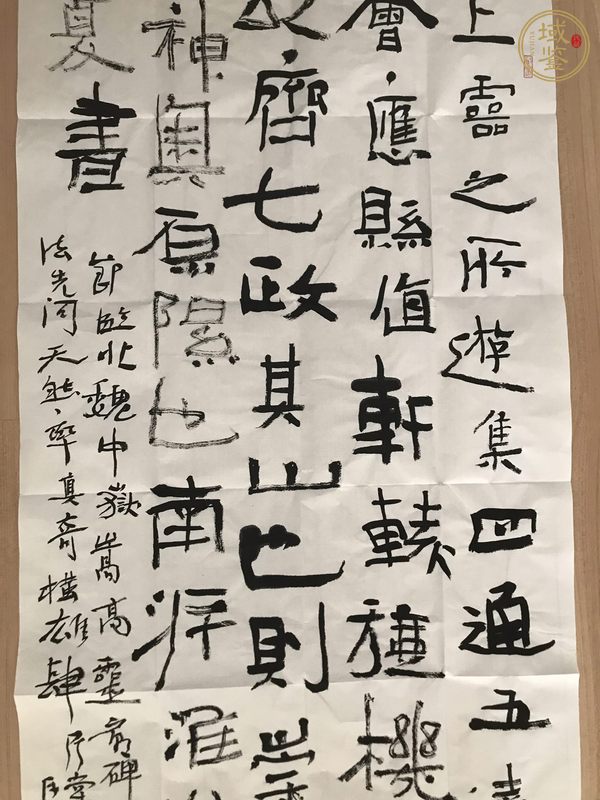 上靈之所遊集四通五達
會應縣值軒轅機
以齊七政其山也則崇
神奥原隰也南浮淮
夏書
節臨北魏中嶽嵩高靈廟碑
法先問天然率真奇橫雄肆
域鑒